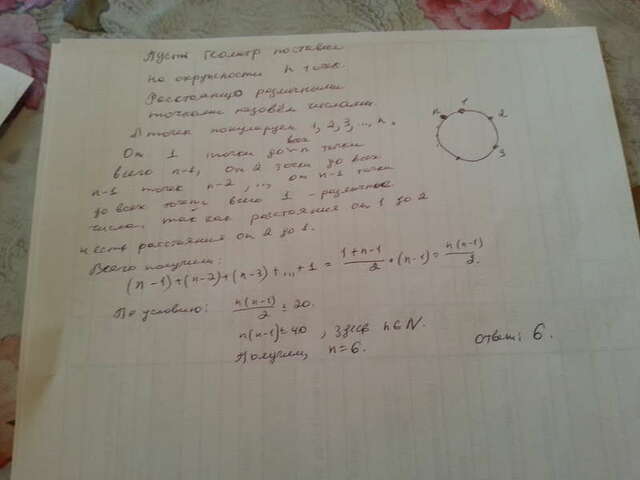 Пусть Геометр поставил
на окружности n точек
Расстояния различными
точками назовём числами.
А точек понумеруем 1, 2, 3, ..., n.
От 1 точки до всех n точки
всего n-1, от 2 точки до всех
n-1 точек n-2, ..., от n-1 точки
до всех точек всего 1 - различное
число, так как расстояния от 1 до 2
и есть расстояния от 2 до 1.
Всего получим:
(n-1)+(n-2)+(n-3)+...+1 = 1+n-1/2 • (n-1) = n(n-1)/2.
По условию: n(n-1)/2 ≤ 20.
n(n-1) ≤ 40, здесь n∈N.
Получим, n=6.
Ответ: 6.
n 1 2 3